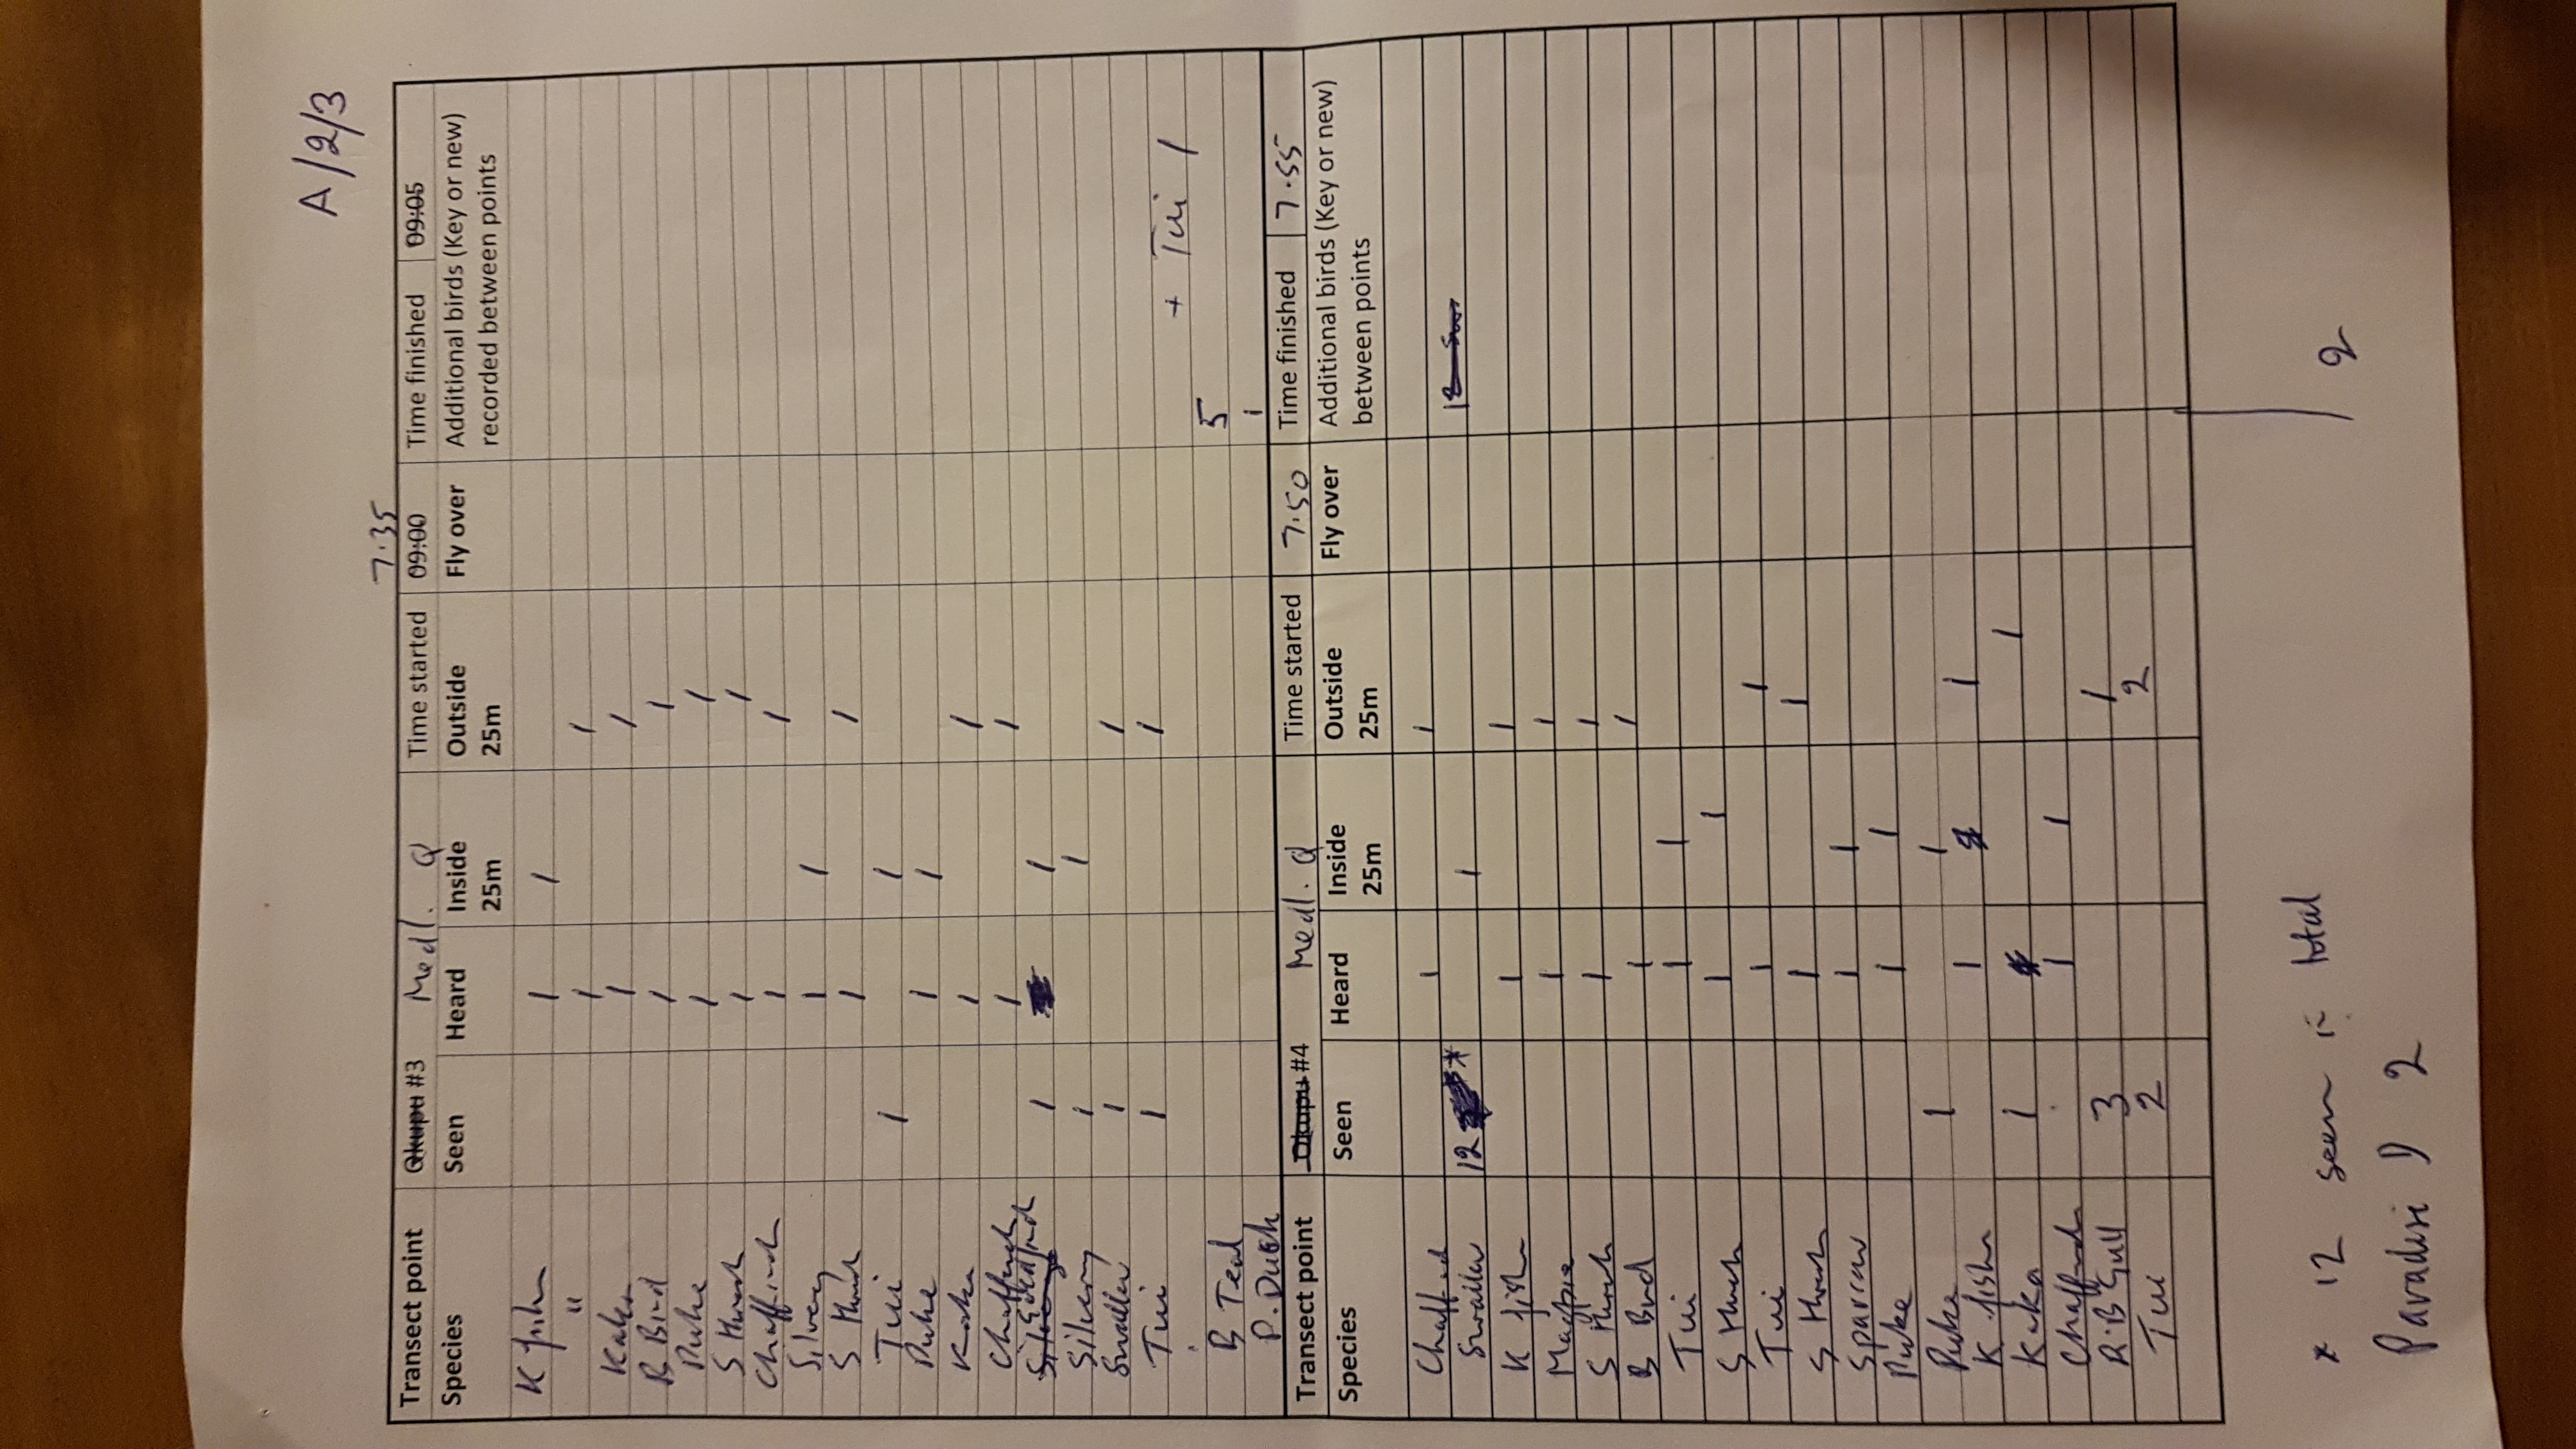 A/2/3
7.35
Transect point Okupu #3 Medl. Q Time started 09:00 Time finished 09:05
Species Seen Heard Inside 25m Outside 25m Fly over Additional birds (Key or new) recorded between points
K fish 1 1
" 1 1
Kaka 1 1
B Bird 1 1
Puke 1 1
S thrush 1 1
Chaffinch 1 1
Silvery 1 1
S thrush 1 1
Tui 1 1
Puke 1 1
Kaka 1 1
Chaffinch 1 1
Silvery Goldfinch 1 1
Silvery 1 1
Swallow 1 1
Tui 1 1
+ Tui 1
B Teal 5
P. Duck 1
Transect point Okupu #4 Medl. Q Time started 7.50 Time finished 7.55
Species Seen Heard Inside 25m Outside 25m Fly over Additional birds (Key or new) between points
Chaffinch 1 1
Swallow 12 * 1
K fish 1 1
Magpie 1 1
S thrush 1 1
B Bird 1 1
Tui 1 1
S thrush 1 1
Tui 1 1
S thrush 1 1
Sparrow 1 1
Puke 1 1
Puke 1 1
K fish 1 1
Kaka 1 1
Chaffinch 1 1
R.B Gull 3 1
Tui 2 2
* 12 seen in total
2
Paradise D 2